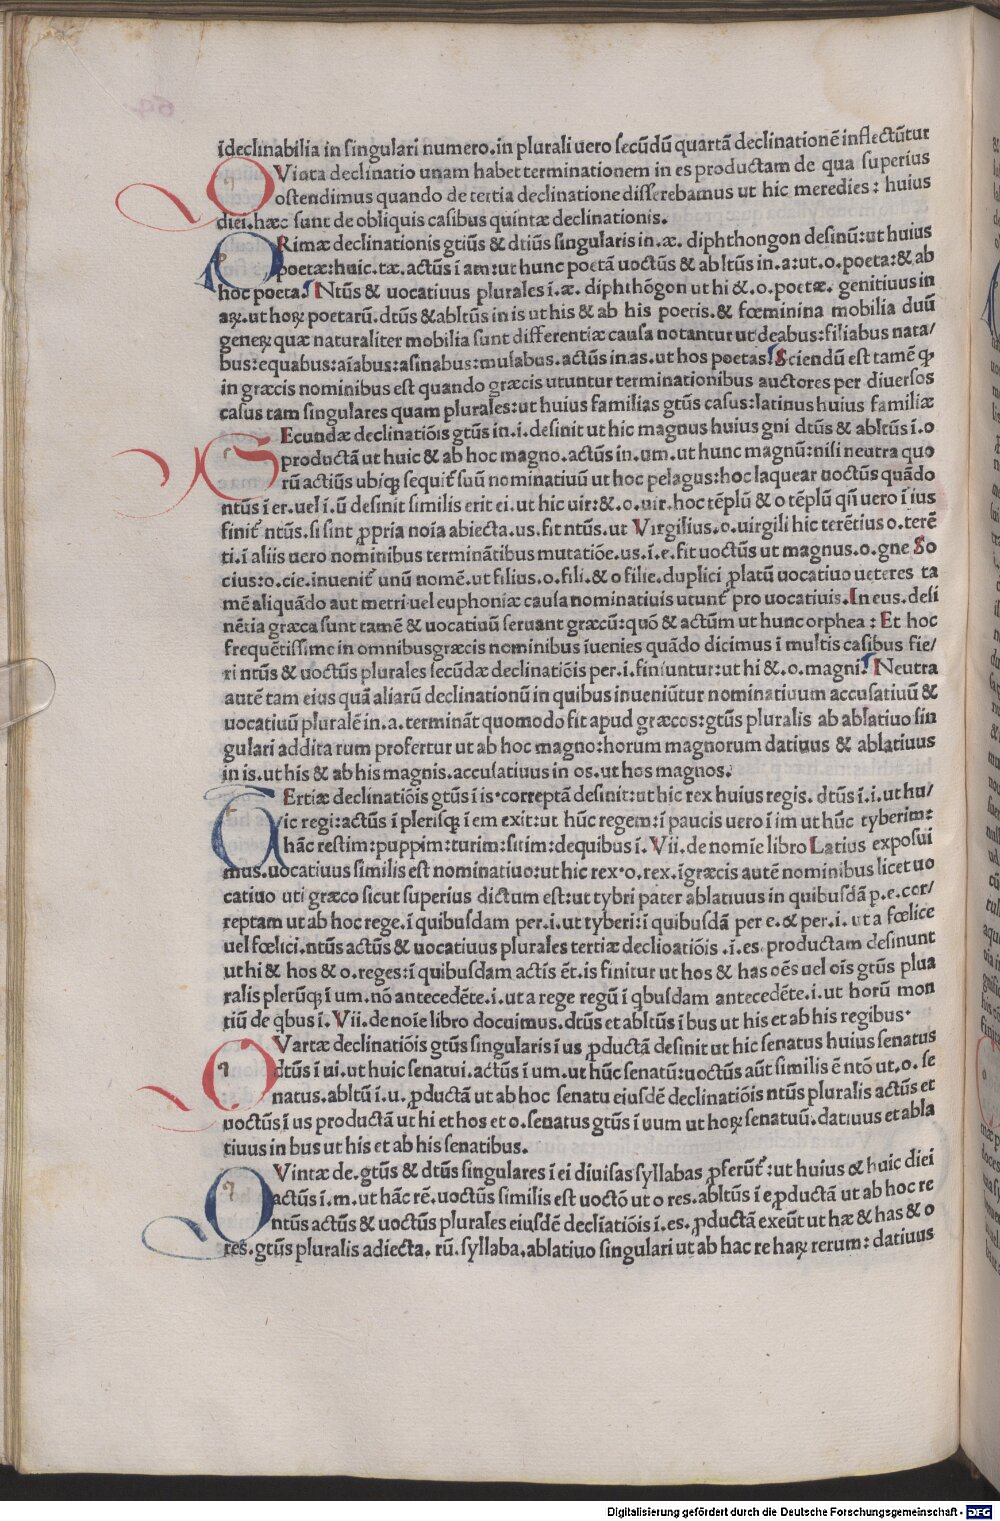 ĩdeclinabilia in singulari numero.in plurali uero secũdũ quartã declinationẽ inflectũtur
QVinta declinatio unam habet terminationem in es productam de qua superius
ostendimus quando de tertia declinatione disserebamus ut hic meredies: huius
diei.hæc sunt de obliquis casibus quintæ declinationis.
PRimæ declinationis gtiũs & dtiũs singularis in.æ. diphthongon desinũ:ut huius
poetæ:huic.tæ.actũs ĩ am:ut hunc poetã uoctũs & abltũs in.a:ut.o.poeta:& ab
hoc poeta. Ntũs & uocatiuus plurales ĩ.æ. diphthõgon ut hi &.o.poetæ. genitiuus in
aꝝ.ut horꝝ poetarũ.dtũs &abltũs in is ut his & ab his poetis.& fœminina mobilia duũ
generꝝ quæ naturaliter mobilia sunt differentiæ causa notantur ut deabus:filiabus nata/
bus:equabus:aĩabus:asinabus:mulabus.actũs in.as.ut hos poetas. Sciendũ est tamẽ ꝙ
in græcis nominibus est quando græcis utuntur terminationibus auctores per diuersos
casus tam singulares quam plurales:ut huius familias gtũs casus:latinus huius familiæ
SEcundæ declinatiõis gtũs in.i.desinit ut hic magnus huius gni dtũs & abltũs ĩ.o
productã ut huic & ab hoc magno.actũs in.um.ut hunc magnũ:nisi neutra quo
rũ actiũs ubiqꝫ sequit̃ suũ nominatiuũ ut hoc pelagus:hoc laquear uoctũs quãdo
ntũs ĩ er.uel ĩ.ũ desinit similis erit ei.ut hic uir:&.o.uir.hoc tẽplũ & o tẽplũ qñ uero ĩ ius
finit̃ ntũs.si sint ꝓpria noĩa abiecta.us.fit ntũs.ut Virgilius.o.uirgili hic terẽtius o.terẽ
ti.ĩ aliis uero nominibus terminãtibus mutatiõe.us.ĩ.e.fit uoctũs ut magnus.o.gne So
cius:o.cie.inuenit̃ unũ nomẽ.ut filius.o.fili.& o filie.duplici ꝓlatũ uocatiuo ueteres ta
mẽ aliquãdo aut metri uel euphoniæ causa nominatiuis utunt̃ pro uocatiuis.In eus.desi
nẽtia græca sunt tamẽ & uocatiuũ seruant græcũ:quõ & actũm ut hunc orphea : Et hoc
frequẽtissime in omnibusgræcis nominibus ĩuenies quãdo dicimus ĩ multis casibus fie/
ri ntũs & uoctũs plurales secũdæ declinatiõis per.i.finiuntur:ut hi &.o.magni. Neutra
autẽ tam eius quã aliarũ declinationũ in quibus inueniũtur nominatiuum accusatiuũ &
uocatiuũ pluralẽ in.a.terminãt quomodo fit apud græcos:gtũs pluralis ab ablatiuo sin
gulari addita rum profertur ut ab hoc magno:horum magnorum datiuus & ablatiuus
in is.ut his & ab his magnis.accusatiuus in os.ut hos magnos.
TErtiæ declinatiõis gtũs ĩ is·correptã desinit:ut hic rex huius regis. dtũs ĩ.i.ut hu/
ic regi:actũs ĩ plerisqꝫ ĩ em exit:ut hũc regem:ĩ paucis uero ĩ im ut hũc tyberim:
hãc restim:puppim:turim:sitim:dequibus ĩ. Vii.de nomĩe libro Latius exposui
mus.uocatiuus similis est nominatiuo:ut hic rex·o.rex.ĩgræcis autẽ nominibus licet uo
catiuo uti græco sicut superius dictum est:ut tybri pater ablatiuus in quibusdã p.e.cor/
reptam ut ab hoc rege.ĩ quibusdam per.i.ut tyberi:ĩ quibusdã per e.& per.i. ut a fœlice
uel fœlici.ntũs actũs & uocatiuus plurales tertiæ declioatiõis .ĩ.es productam desinunt
ut hi & hos & o.reges:ĩ quibusdam actis ẽt.is finitur ut hos & has oẽs uel oĩs gtũs plua
ralis plerũqꝫ ĩ um.nõ antecedẽte.i.ut a rege regũ ĩ qbusdam antecedẽte.i.ut horũ mon
tiũ de qbus ĩ. Vii.de noĩe libro docuimus.dtũs et abltũs ĩ bus ut his et ab his regibus·
QVartæ declinatiõis gtũs singularis ĩ us ꝓductã desinit ut hic senatus huius senatus
dtũs ĩ ui.ut huic senatui.actũs ĩ um.ut hũc senatũ:uoctũs aũt similis ẽ ntõ ut.o.se
natus.abltũ ĩ.u.ꝓductã ut ab hoc senatu eiusdẽ declinatiõis ntũs pluralis actũs et
uoctũs ĩ us productã ut hi et hos et o.senatus gtũs ĩ uum ut horꝝ senatuũ.datiuus et abla
tiuus in bus ut his et ab his senatibus.
QVintæ de.gtũs & dtũs singulares ĩ ei diuisas syllabas ꝓferũt̃:ut huius & huic diei
actũs ĩ.m.ut hãc rẽ.uoctũs similis est uoctõ ut o res.abltũs ĩ e ꝓductã ut ab hoc re
ntũs actũs & uoctũs plurales eiusdẽ decliatiõis ĩ.es.ꝓductã exeũt ut hæ & has & o
res.gtũs pluralis adiecta.rũ.syllaba.ablatiuo singulari ut ab hac re haꝝ rerum: datiuus
Digitalisierung gefördert durch die Deutsche Forschungsgemeinschaft - DFG